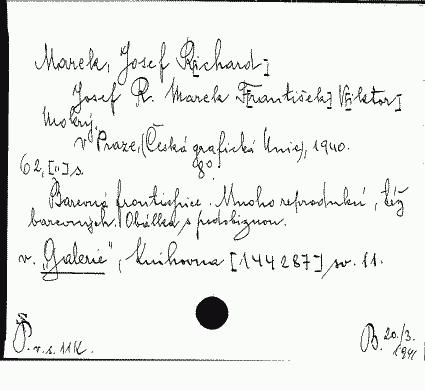 Marek, Josef R[ichard]
Josef R. Marek F[rantišek] V[iktor]
Mokrý.
V Praze, (Česká grafická Unie), 1940.
8°
62, [II] s.
Barevná frontispice. Mnoho reprodukcí, též
barevných. Obálka s podobiznou.
v. "Galerie", Knihovna [144287] sv. 11.
v. s. 11K.
B. 20./3.
1941